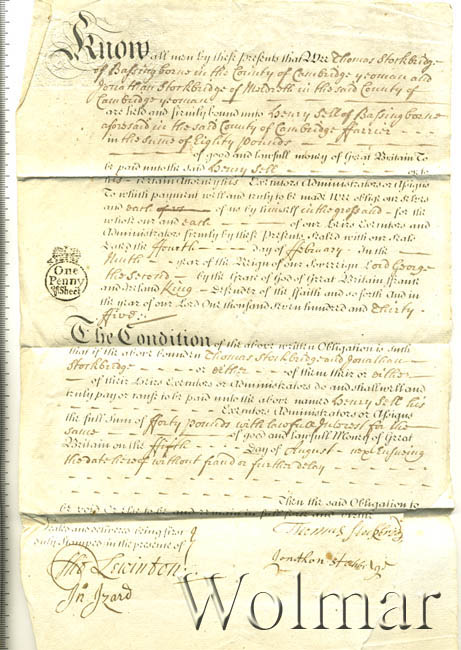 Know all men by these presents that We Thomas Stockbridge
of Bassingborne in the County of Cambridge yeoman and
Jonathan Stockbridge of Meldreth in the said County of
Cambridge yeoman
are held and firmly bound unto Henry Sell of Bassingborne
aforesaid in the said County of Cambridge ffarrier
in the Summe of Eighty pounds
of good and lawfull money of Great Britain To
be paid unto the said Henry Sell or to
his certain Attorney his Executors Administrators or Assigns
To which payment well and truly to be made We oblige our selves
and each of us by himself in the gross and for the
whole our and each of our Heirs Executors and
Administrators firmly by these Presents Sealed with our Seals
Dated the ffourth day of ffebruary In the
Ninth year of the Reign of our Sovereign Lord George
the Second by the Grace of God of Great Britain ffrance
and Ireland King Defender of the ffaith and so forth And in
the year of our Lord One thousand seven hundred and Thirty
ffive
One
Penny
Sheet
The Condition of the above written Obligation is such
that if the above bounden Thomas Stockbridge and Jonathan
Stockbridge or either of them their or either
of their Heirs Executors or Administrators do and shall well and
truly pay or cause to be paid unto the above named Henry Sell his
Executors Administrators or Assigns
the full Sum of fforty pounds with lawfull Interest for the
same of good and lawfull Money of Great
Britain on the ffifth Day of August next Ensuing
the date hereof without fraud or further delay
Then the said Obligation to
be void Or else to be and remain in full force and virtue
Sealed and delivered being first
duly Stamped in the presence of
Tho Lewindon
Jn. Izard
Thomas Stockbridg
Jonathan Stockbridge
Wolmar